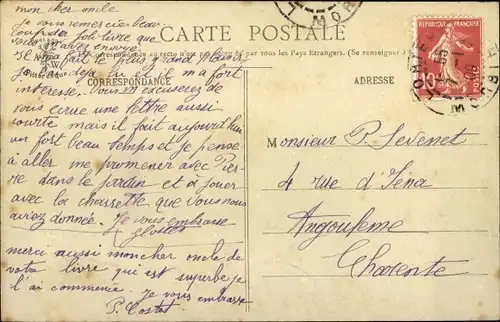 mon cher oncle
je vous remercie beau-
coup du joli livre que
vous avez envoyé
Il m'a fait le plus grand plaisir
je l'ai déjà lu et il m'a fort
interessé. Vous excuserez de
vous ecrire une lettre aussi
courte mais il fait aujourd'hui
un fort beau temps et je pense
à aller me promener avec Pier-
re dans le jardin et à jouer
avec la charrette que vous nous
aviez donnée. Je vous embrasse
merci aussi mon cher oncle de
votre livre qui est superbe je
l'ai commencé. Je vous embrasse
P. Costas
CARTE POSTALE
tous les Pays Etrangers. (Se renseigner
CORRESPONDANCE
ADRESSE
10
Monsieur P. Levenet
4 rue d'Iéna
Angoulème
Charente